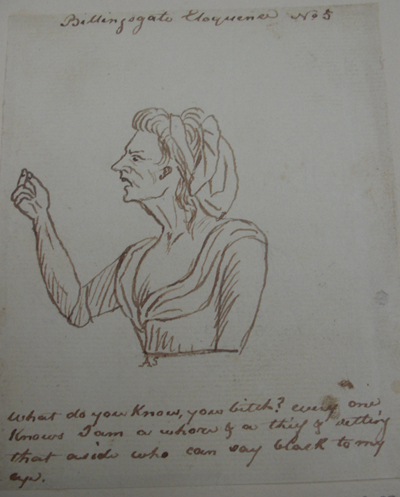 Billingsgate Eloquence No 5
AS
what do you Know, you bitch? every one
Knows I am a whore & a thief & setting
that aside who can say black to my
eye.